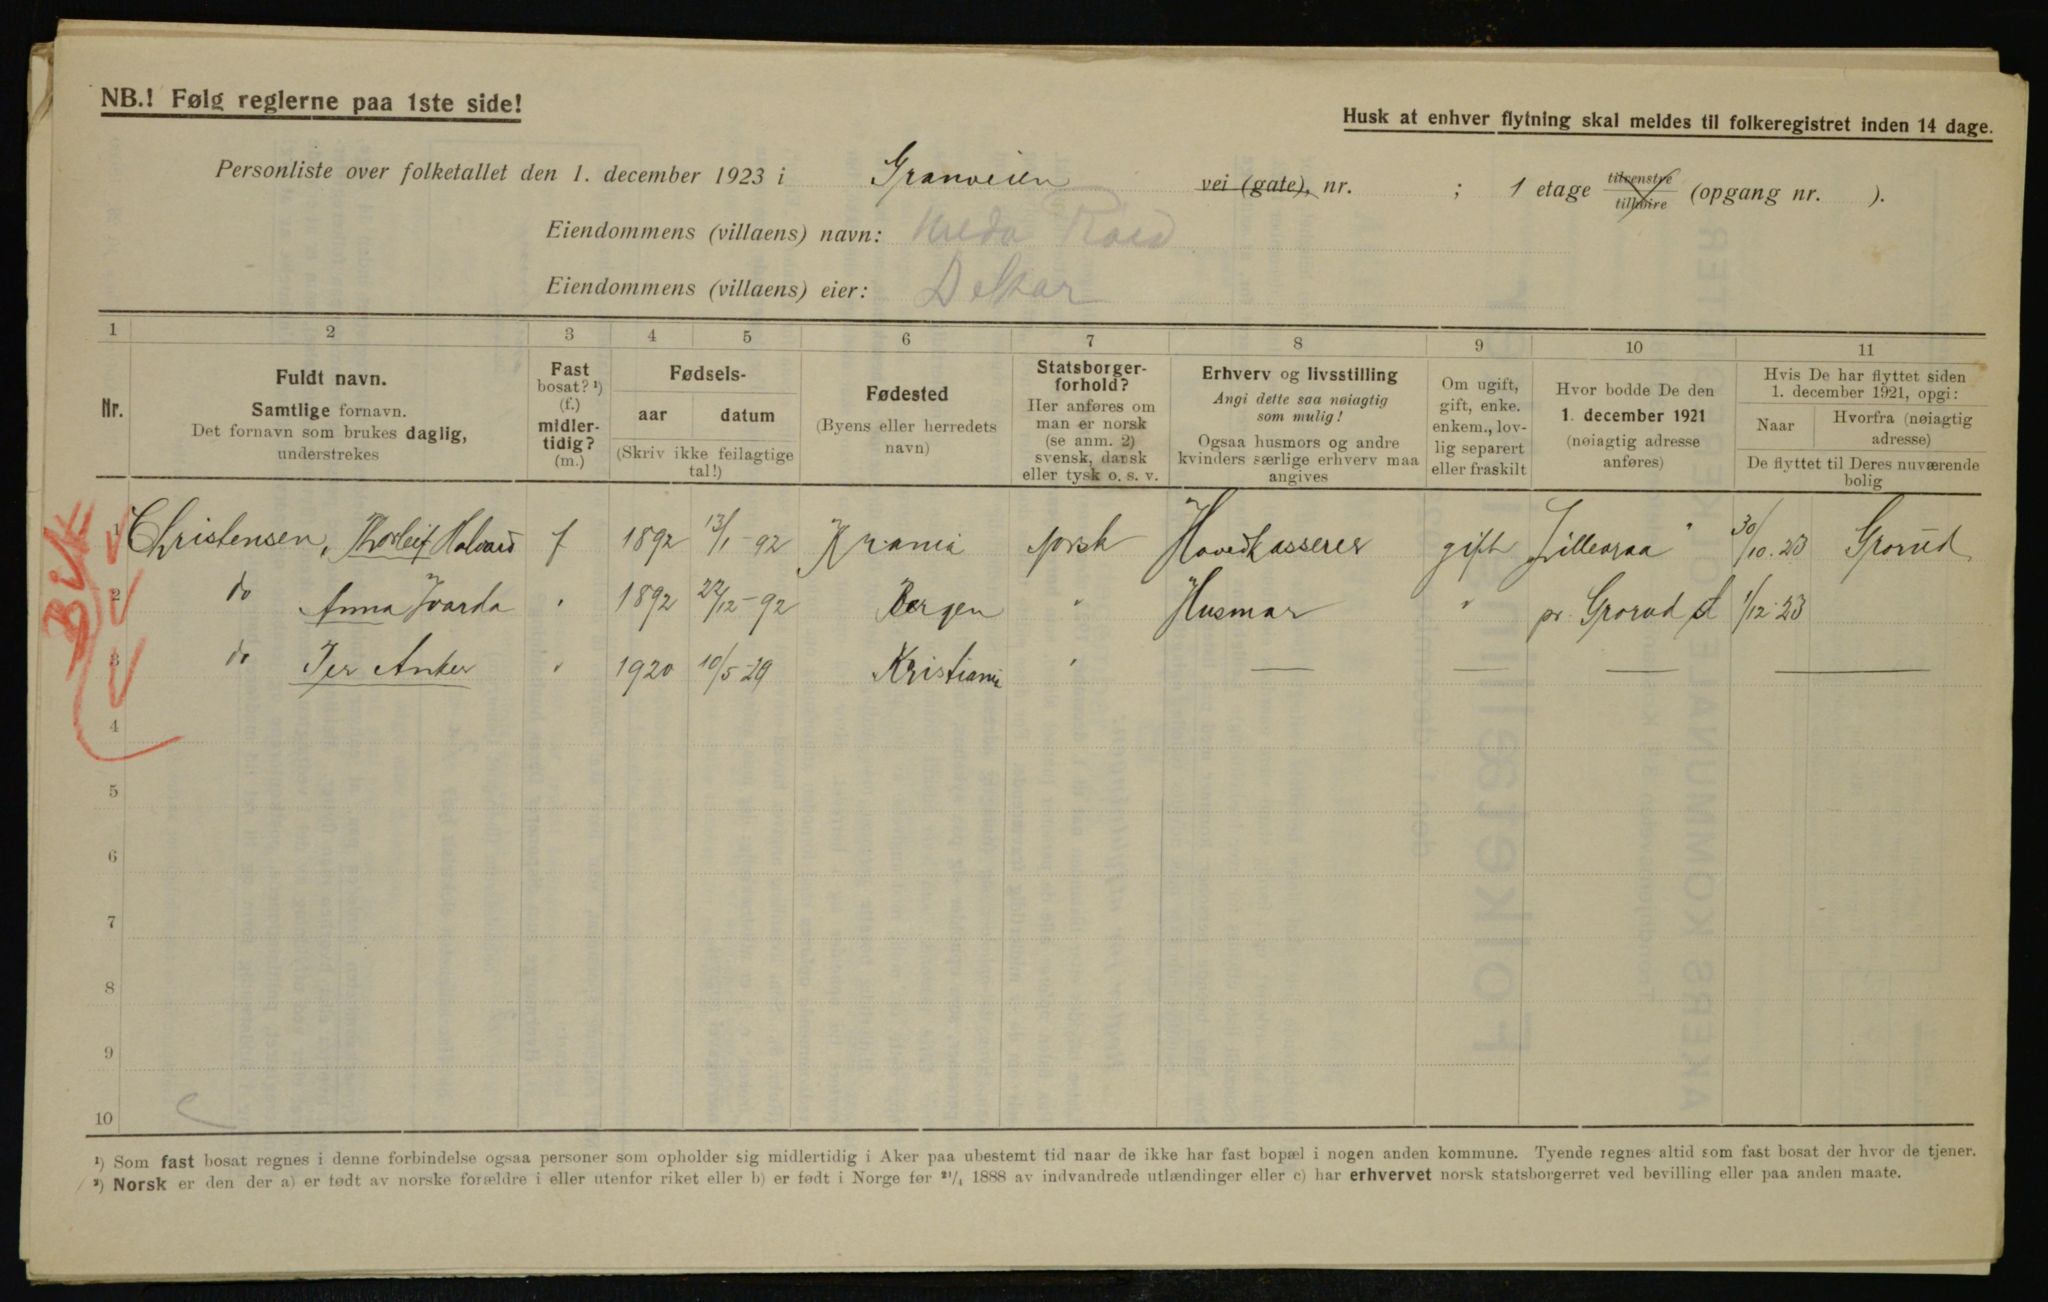 NB.! Følg reglerne paa 1ste side!
Husk at enhver flytning skal meldes til folkeregistret inden 14 dage.
Personliste over folketallet den 1. december 1923 i Granveien vei (gate), nr. ; 1 etage tilvenstre tilhøire (opgang nr. ).
Eiendommens (villaens) navn:
Eiendommens (villaens) eier:
1 2 3 4 5 6 7 8 9 10 11
Nr.
Fuldt navn.
Samtlige fornavn.
Det fornavn som brukes daglig,
understrekes
Fast
bosat? ¹)
(f.)
midler-
tidig?
(m.)
Fødsels-
aar datum
(Skriv ikke feilagtige
tal!)
Fødested
(Byens eller herredets
navn)
Statsborger-
forhold?
Her anføres om
man er norsk
(se anm. 2)
svensk, dansk
eller tysk o. s. v.
Erhverv og livsstilling
Angi dette saa nøiagtig
som mulig!
Ogsaa husmors og andre
kvinders særlige erhverv maa
angives
Om ugift,
gift, enke.
enkem., lov-
lig separert
eller fraskilt
Hvor bodde De den
1. december 1921
(nøiagtig adresse
anføres)
Hvis De har flyttet siden
1. december 1921, opgi:
Naar Hvorfra (nøiagtig
adresse)
De flyttet til Deres nuværende
bolig
1 Christensen, Thorleif Halvard f 1892 13/1-92 Krania norsk Hovedkasserer gift Lillearaa 30/10.23 Grorud
2 do Anna Ivarda " 1892 22/12-92 Bergen " Husmor " pr. Grorud st 1/12.23
3 do Per Anker " 1920 10/5-29 Kristiania " — — — —
4
5
6
7
8
9
10
¹) Som fast bosat regnes i denne forbindelse ogsaa personer som opholder sig midlertidig i Aker paa ubestemt tid naar de ikke har fast bopæl i nogen anden kommune. Tyende regnes altid som fast bosat der hvor de tjener.
²) Norsk er den der a) er født av norske forældre i eller utenfor riket eller b) er født i Norge før 21/4 1888 av indvandrede utlændinger eller c) har erhvervet norsk statsborgerret ved bevilling eller paa anden maate.